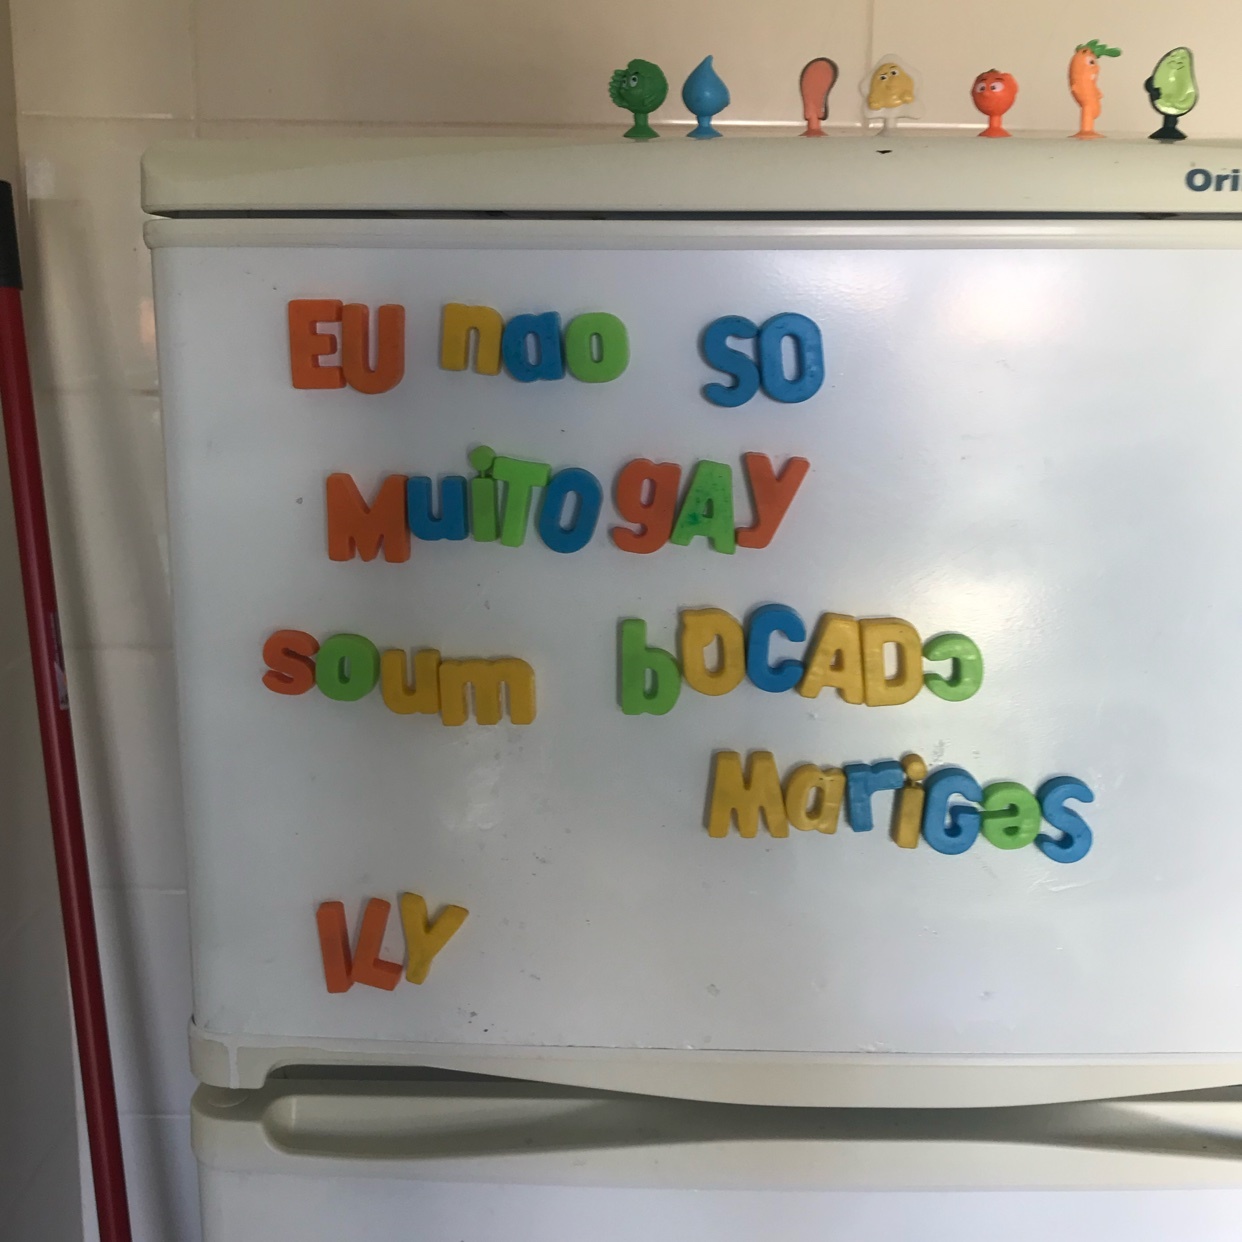 Ori
EU nao so
MuiTo gAy
soum bOCADo
MariGes
VLY